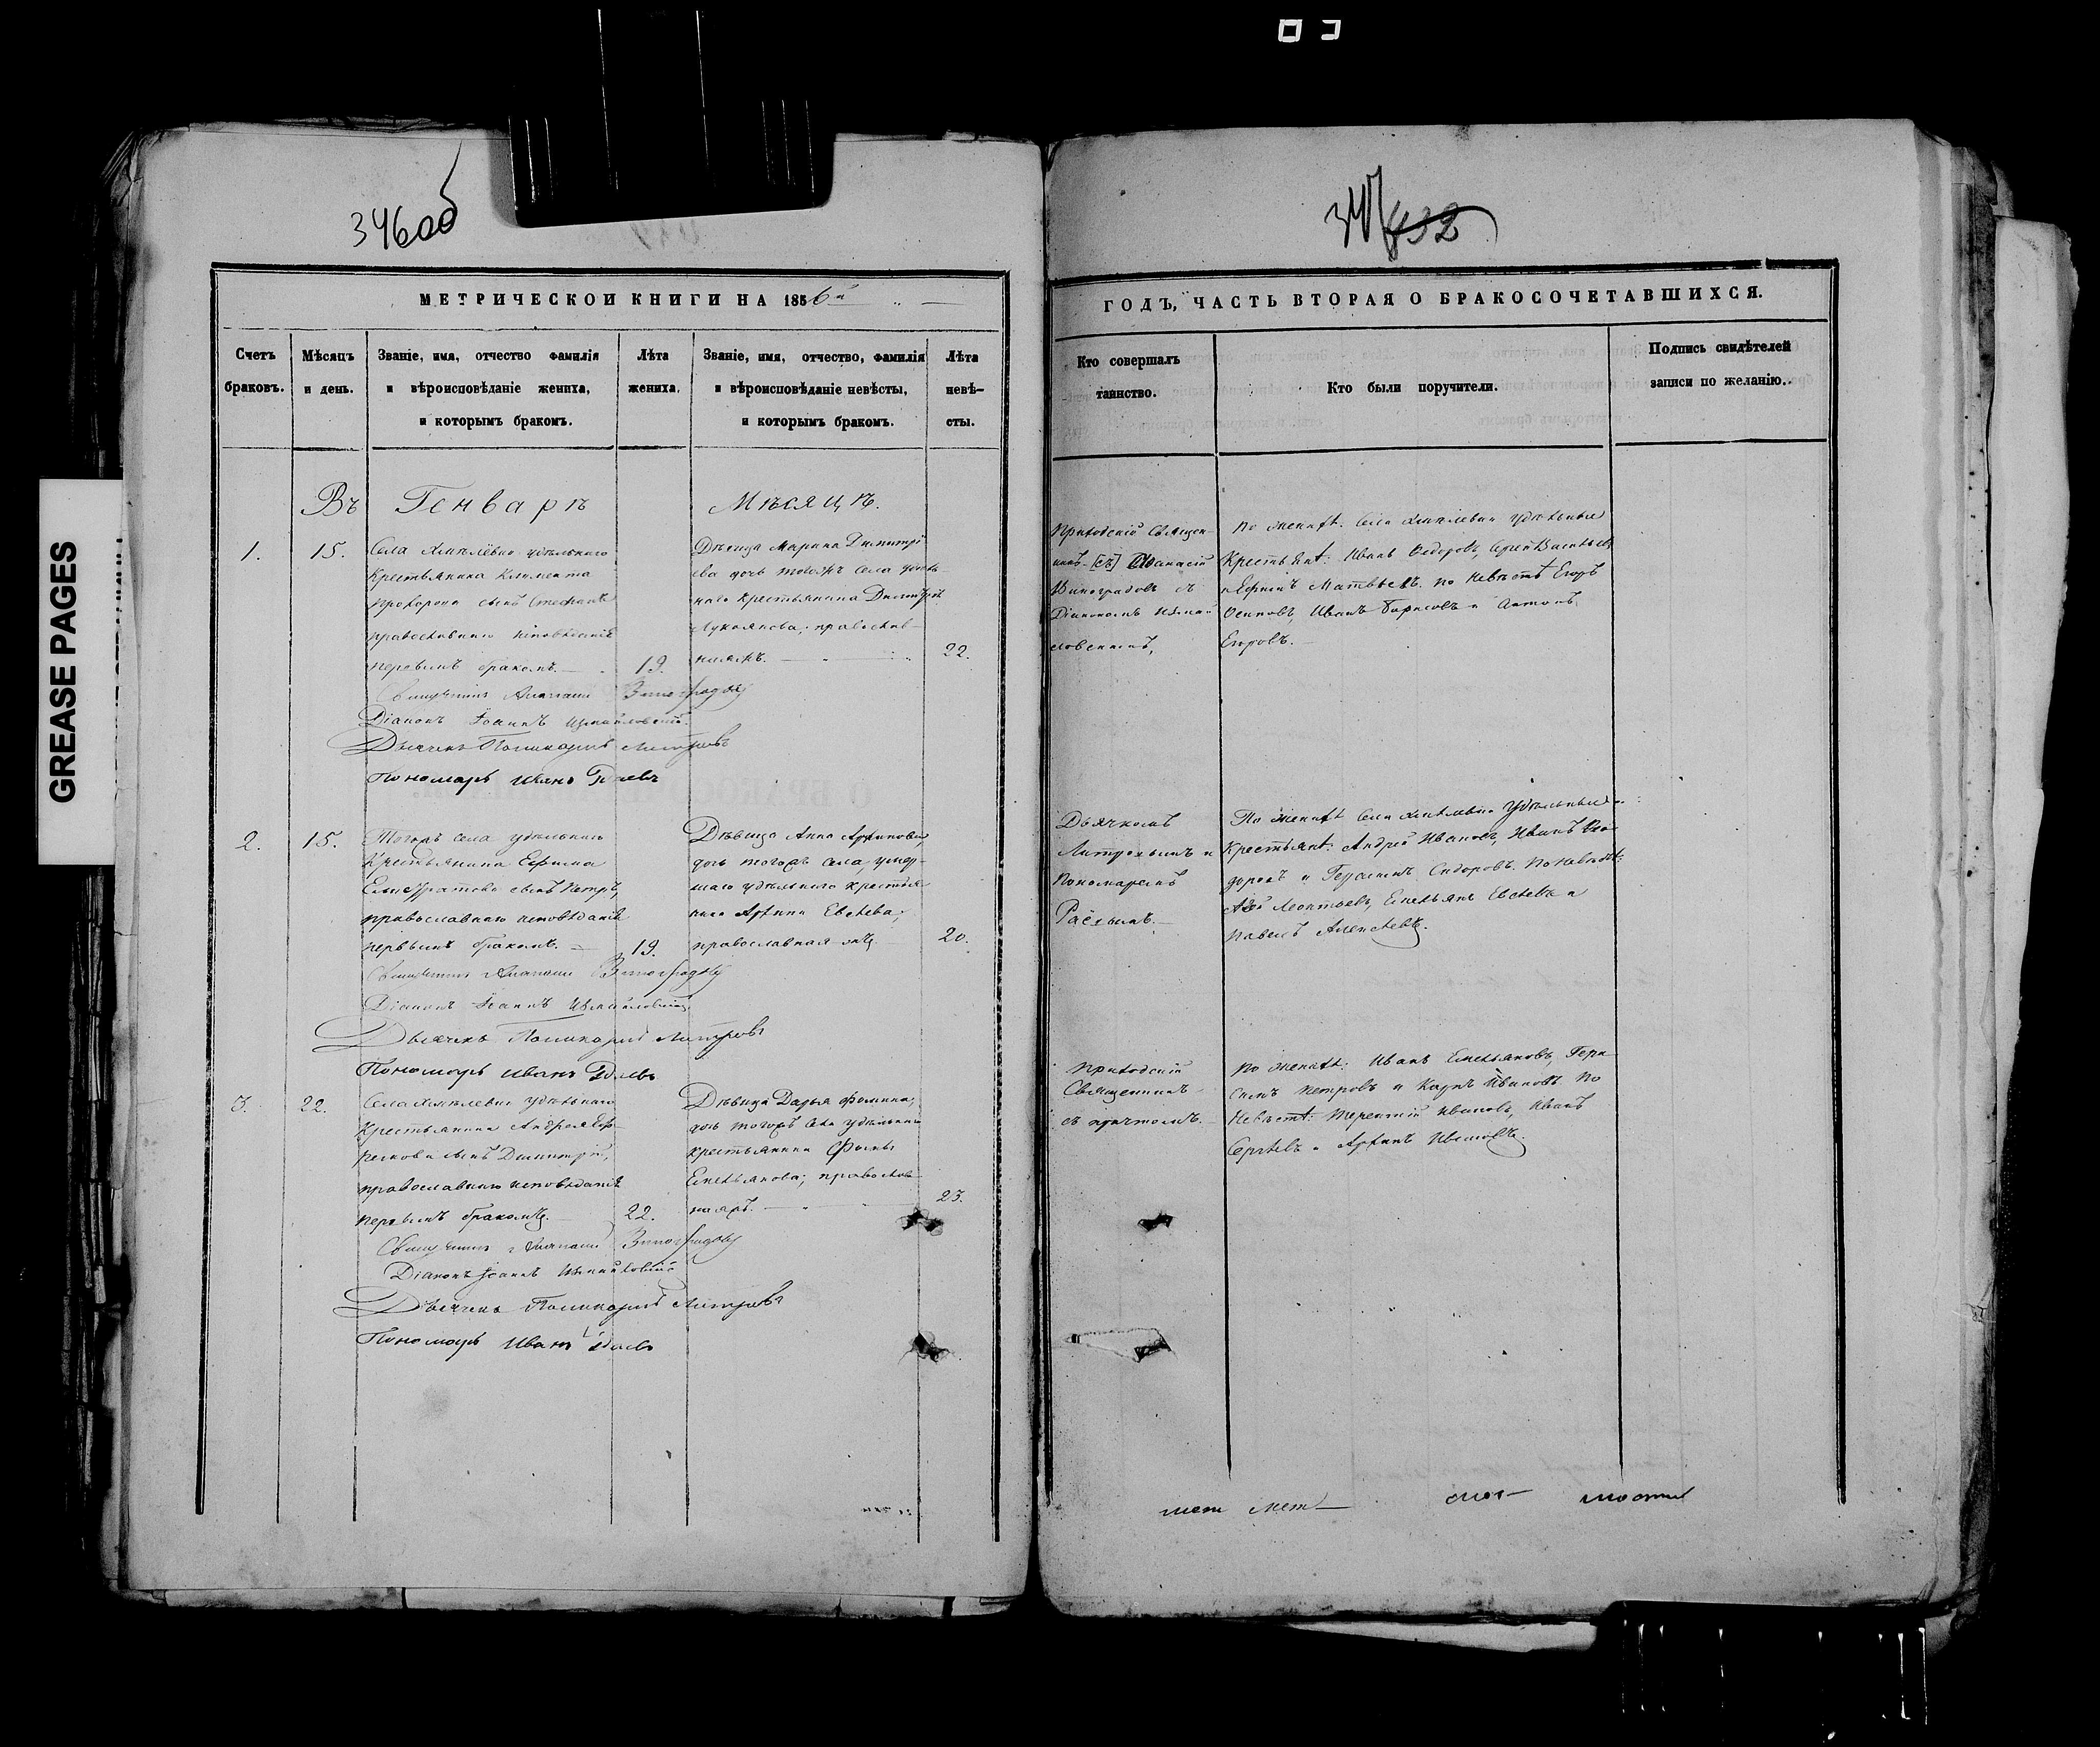 346об
347 432
GREASE PAGES
МЕТРИЧЕСКОЙ КНИГИ НА 1856й
ГОДЪ, ЧАСТЬ ВТОРАЯ О БРАКОСОЧЕТАВШИХСЯ.
Счетъ браковъ.
Мѣсяцъ и день.
Званіе, имя, отчество фамилія
и вѣроисповѣданіе жениха,
и которымъ бракомъ.
Лѣта
жениха.
Званіе, имя, отчество, фамилія
и вѣроисповѣданіе невѣсты,
и которымъ бракомъ.
Лѣта
невѣ-
сты.
Кто совершалъ
таинство.
Кто были поручители.
Подпись свидѣтелей
записи по желанію.
Въ Генварѣ Мѣсяцѣ.
1.
15.
Села удѣльнаго
Крестьянина Климента
Прохорова сынъ Стефанъ
православнаго исповѣданія
первымъ бракомъ.
19.
Дѣвица Марина Димитрі
ева дочь тогожъ села удѣль
наго крестьянина Димитрія
Лукоянова; православ-
22.
Приходскій Священ-
никъ [съ] Аѳанасій
Виноградовъ съ
Діакономъ Измай
ловскимъ,
По женихѣ: Села удѣльные
Крестьяне: Иванъ Ѳедоровъ, Сергей Васильевъ
и Ефимъ Матвѣевъ. по невѣстѣ Егоръ
Осиповъ, Иванъ Борисовъ и Антонъ
Егоровъ.
Священникъ Аѳанасій Виноградовъ
Діаконъ Іоаннъ Измайловскій
Дьячекъ Поликарпъ
Пономарь Иванъ Раевъ
2.
15.
Тогожъ села удѣльнаго
Крестьянина Ефима
сынъ Петръ,
православнаго исповѣданія
первымъ бракомъ.
19.
Дѣвица Анна Архипова,
дочь тогожъ села, умер-
шаго удѣльнаго крестья
нина Архипа Евсѣева,
православная
20.
Дьячкомъ
и
Пономаремъ
Раевымъ.
По женихѣ Села удѣльные
Крестьяне: Андрей Ивановъ, Иванъ Ѳео
доровъ и Герасимъ Сидоровъ. По невѣстѣ:
Леонтьевъ, Емельянъ Евсѣевъ и
Павелъ Алексѣевъ.
Священникъ Аѳанасій Виноградовъ
Діаконъ Іоаннъ Измайловскій
Дьячекъ Поликарпъ
Пономарь Иванъ Раевъ
3.
22.
Села удѣльнаго
Крестьянина Андрея
сынъ Димитрій,
православнаго исповѣданія
первымъ бракомъ.
22.
Дѣвица Дарья Фомина,
дочь тогожъ села удѣльнаго
крестьянина Фомы
Емельянова; православ
23.
Приходскій
Священникъ
съ причтомъ.
По женихѣ: Иванъ Емельяновъ, Гера
симъ Петровъ и Карпъ Ивановъ По
Невѣстѣ: Терентій Ивановъ, Иванъ
Сергѣевъ и Архипъ Ивановъ.
Священникъ Аѳанасій Виноградовъ
Діаконъ Іоаннъ Измайловскій
Дьячекъ Поликарпъ
Пономарь Иванъ Раевъ